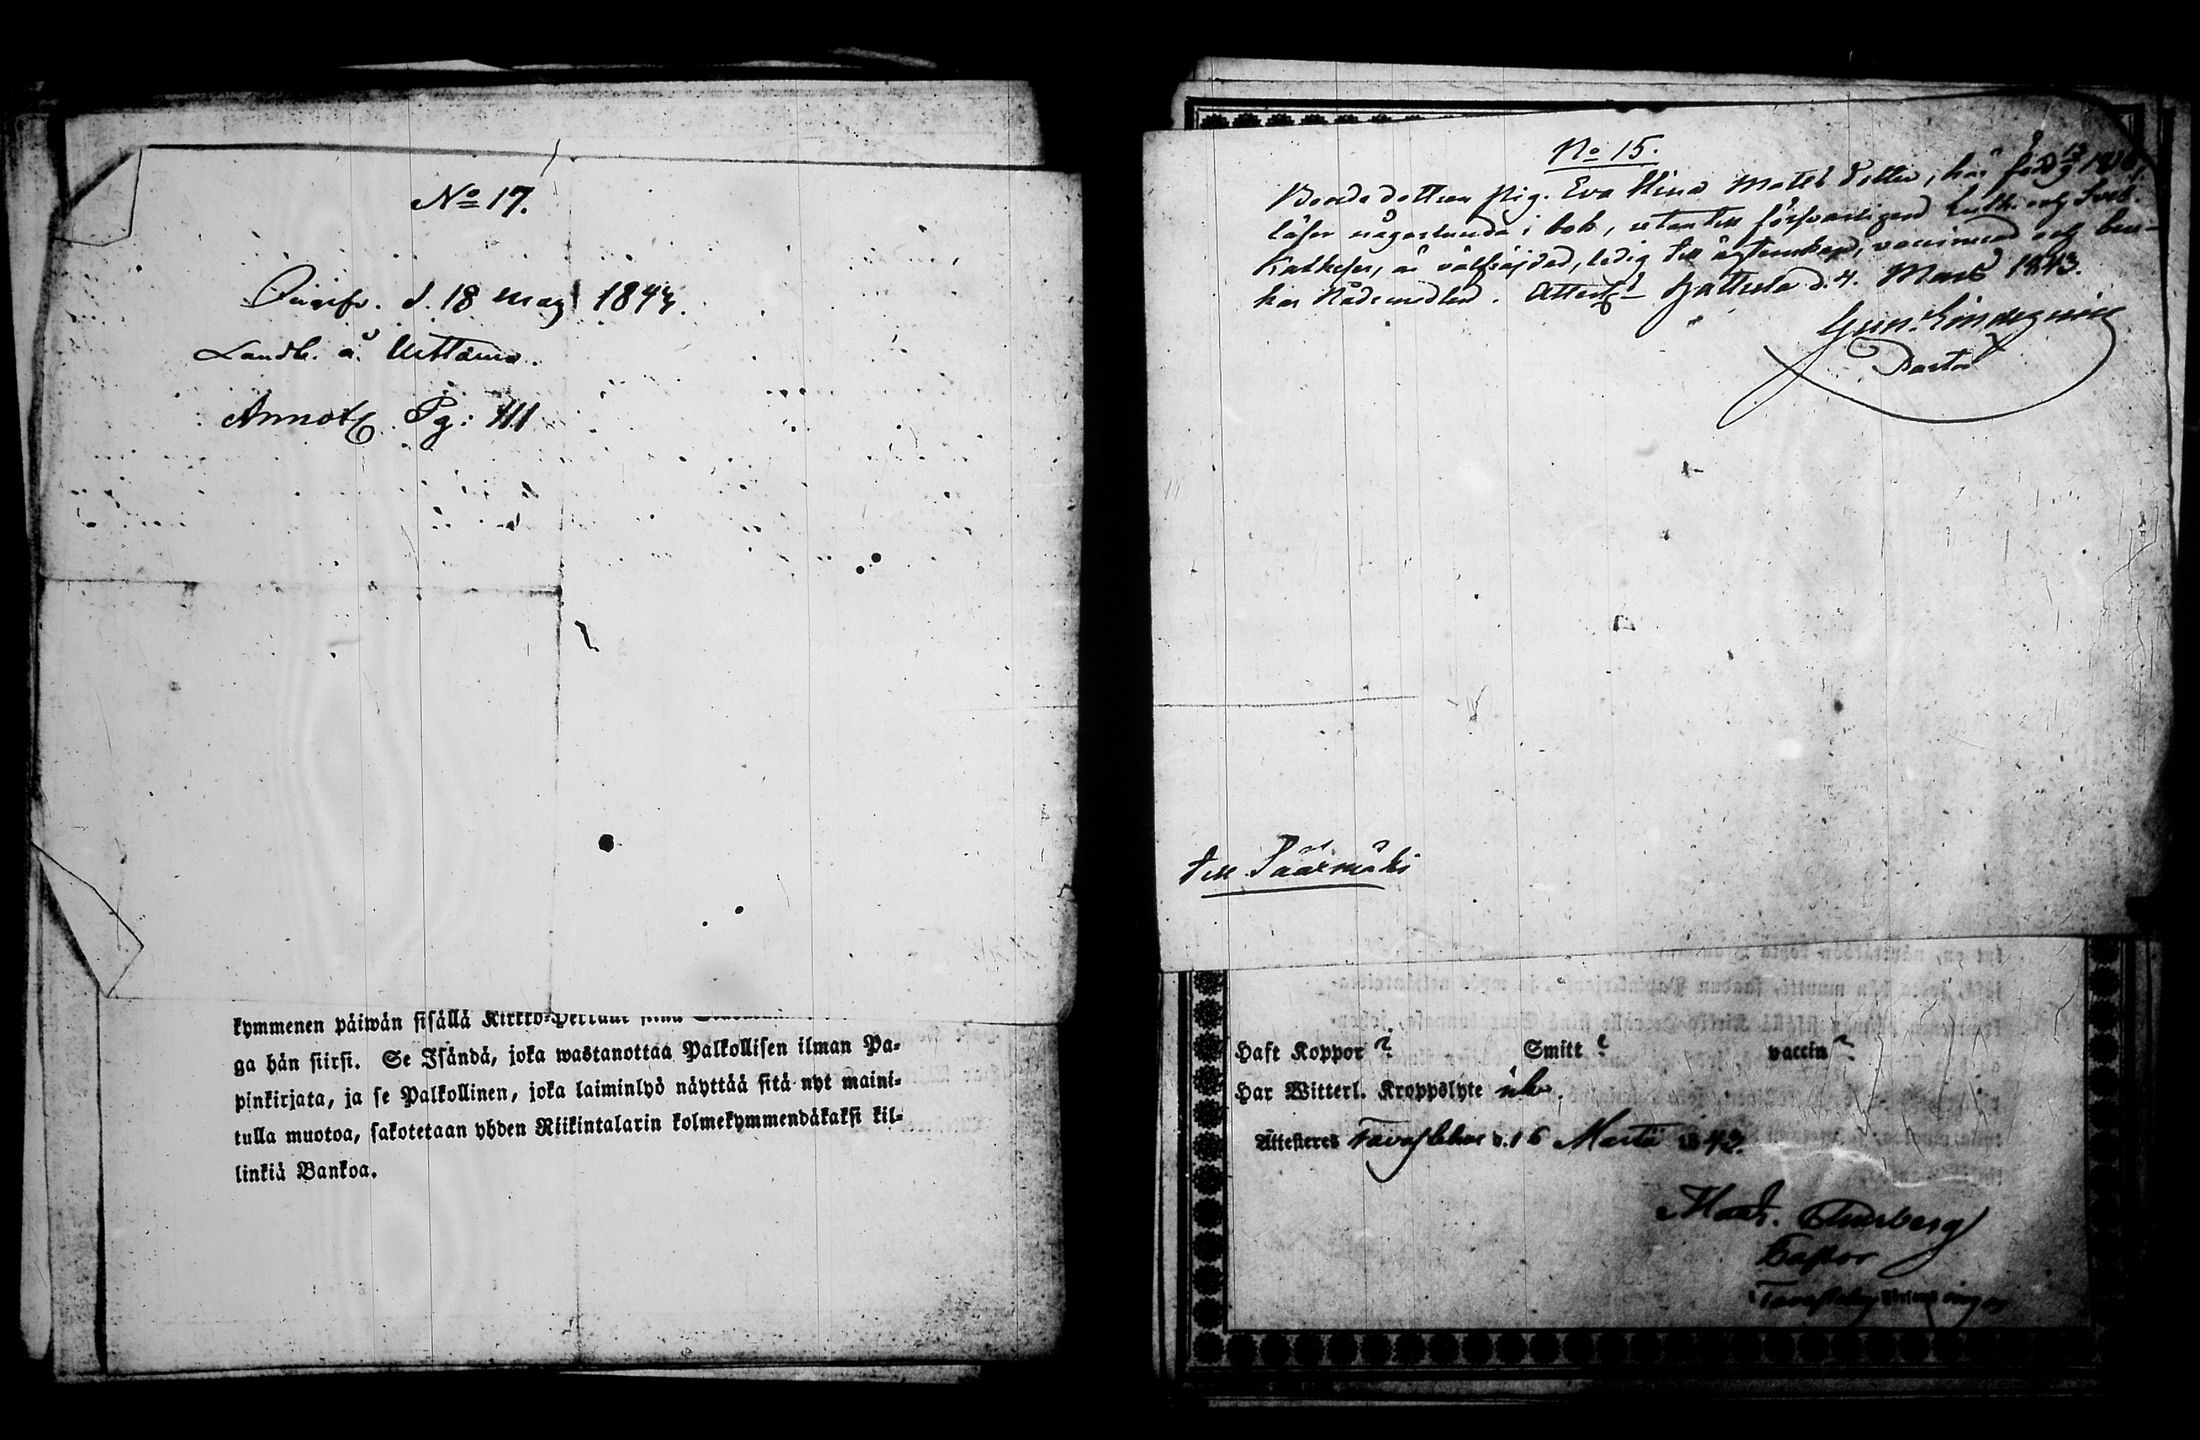 No 17.
d. 18 Maij 1843.
Landb. å Uittamo.
Annot. Pg: 111
kymmenen päiwän sisällä Kirkko-Herralle
ga hän siirsi. Se Isändä, joka wastanottaa Palkollisen ilman Pa-
pinkirjata, ja se Palkollinen, joka laiminlyö näyttää sitä nyt maini-
tulla muotoa, sakotetaan yhden Riikintalarin kolmekymmendäkaksi kil-
linkiä Bankoa.
No 15.
Bondedottren Pig. Eva Stina Mats dotter, här född
läser någorlunda i bok, utantill försvarligen Luth. och Sveb.
Katkeser, är välfräjdad, ledig till ägtenskap, vaccinerad och
har Nådemedlen. Attest. Hattula d. 4. Mars 1843.
Pastor
till Päärmäki
Haft Koppor ? Smitt ? vaccin ?
Har Witterl. Kroppslyte
Attesteres Tavastehus d. 16 Martii 1843.
Thunberg
Pastor